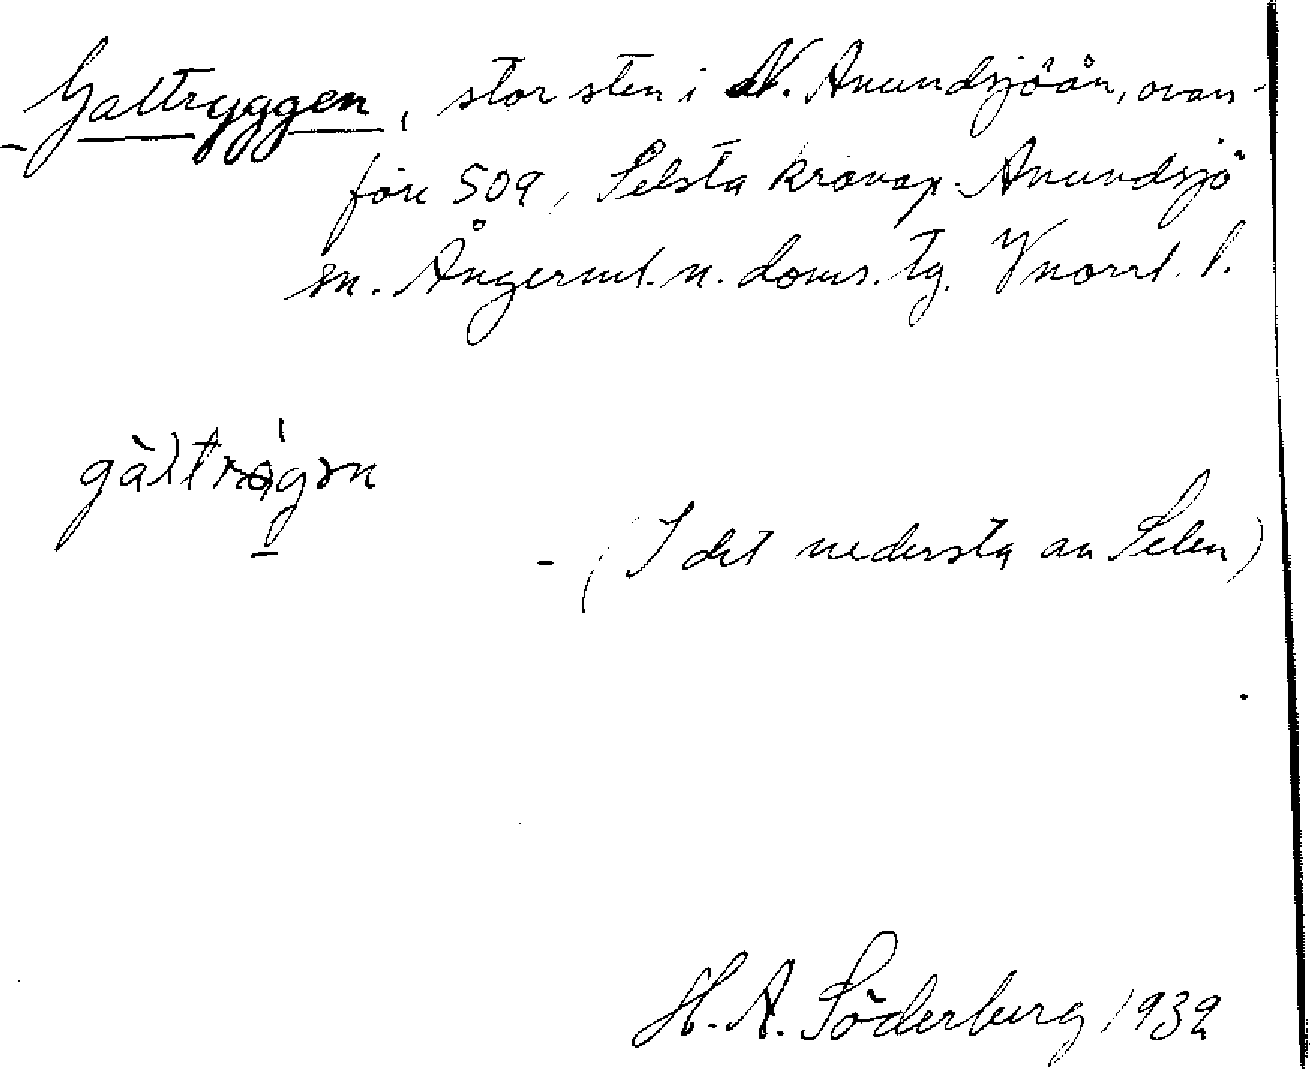 Galtryggen, stor sten i N. Anundsjöån, ovan-
för 509, Selsta kronop. Anundsjö
sn. Ångerml. n. doms. tg. Vnorrl. l.
gàltrøgən
- (I det nedersta av Selen)
H. A. Söderberg 1932